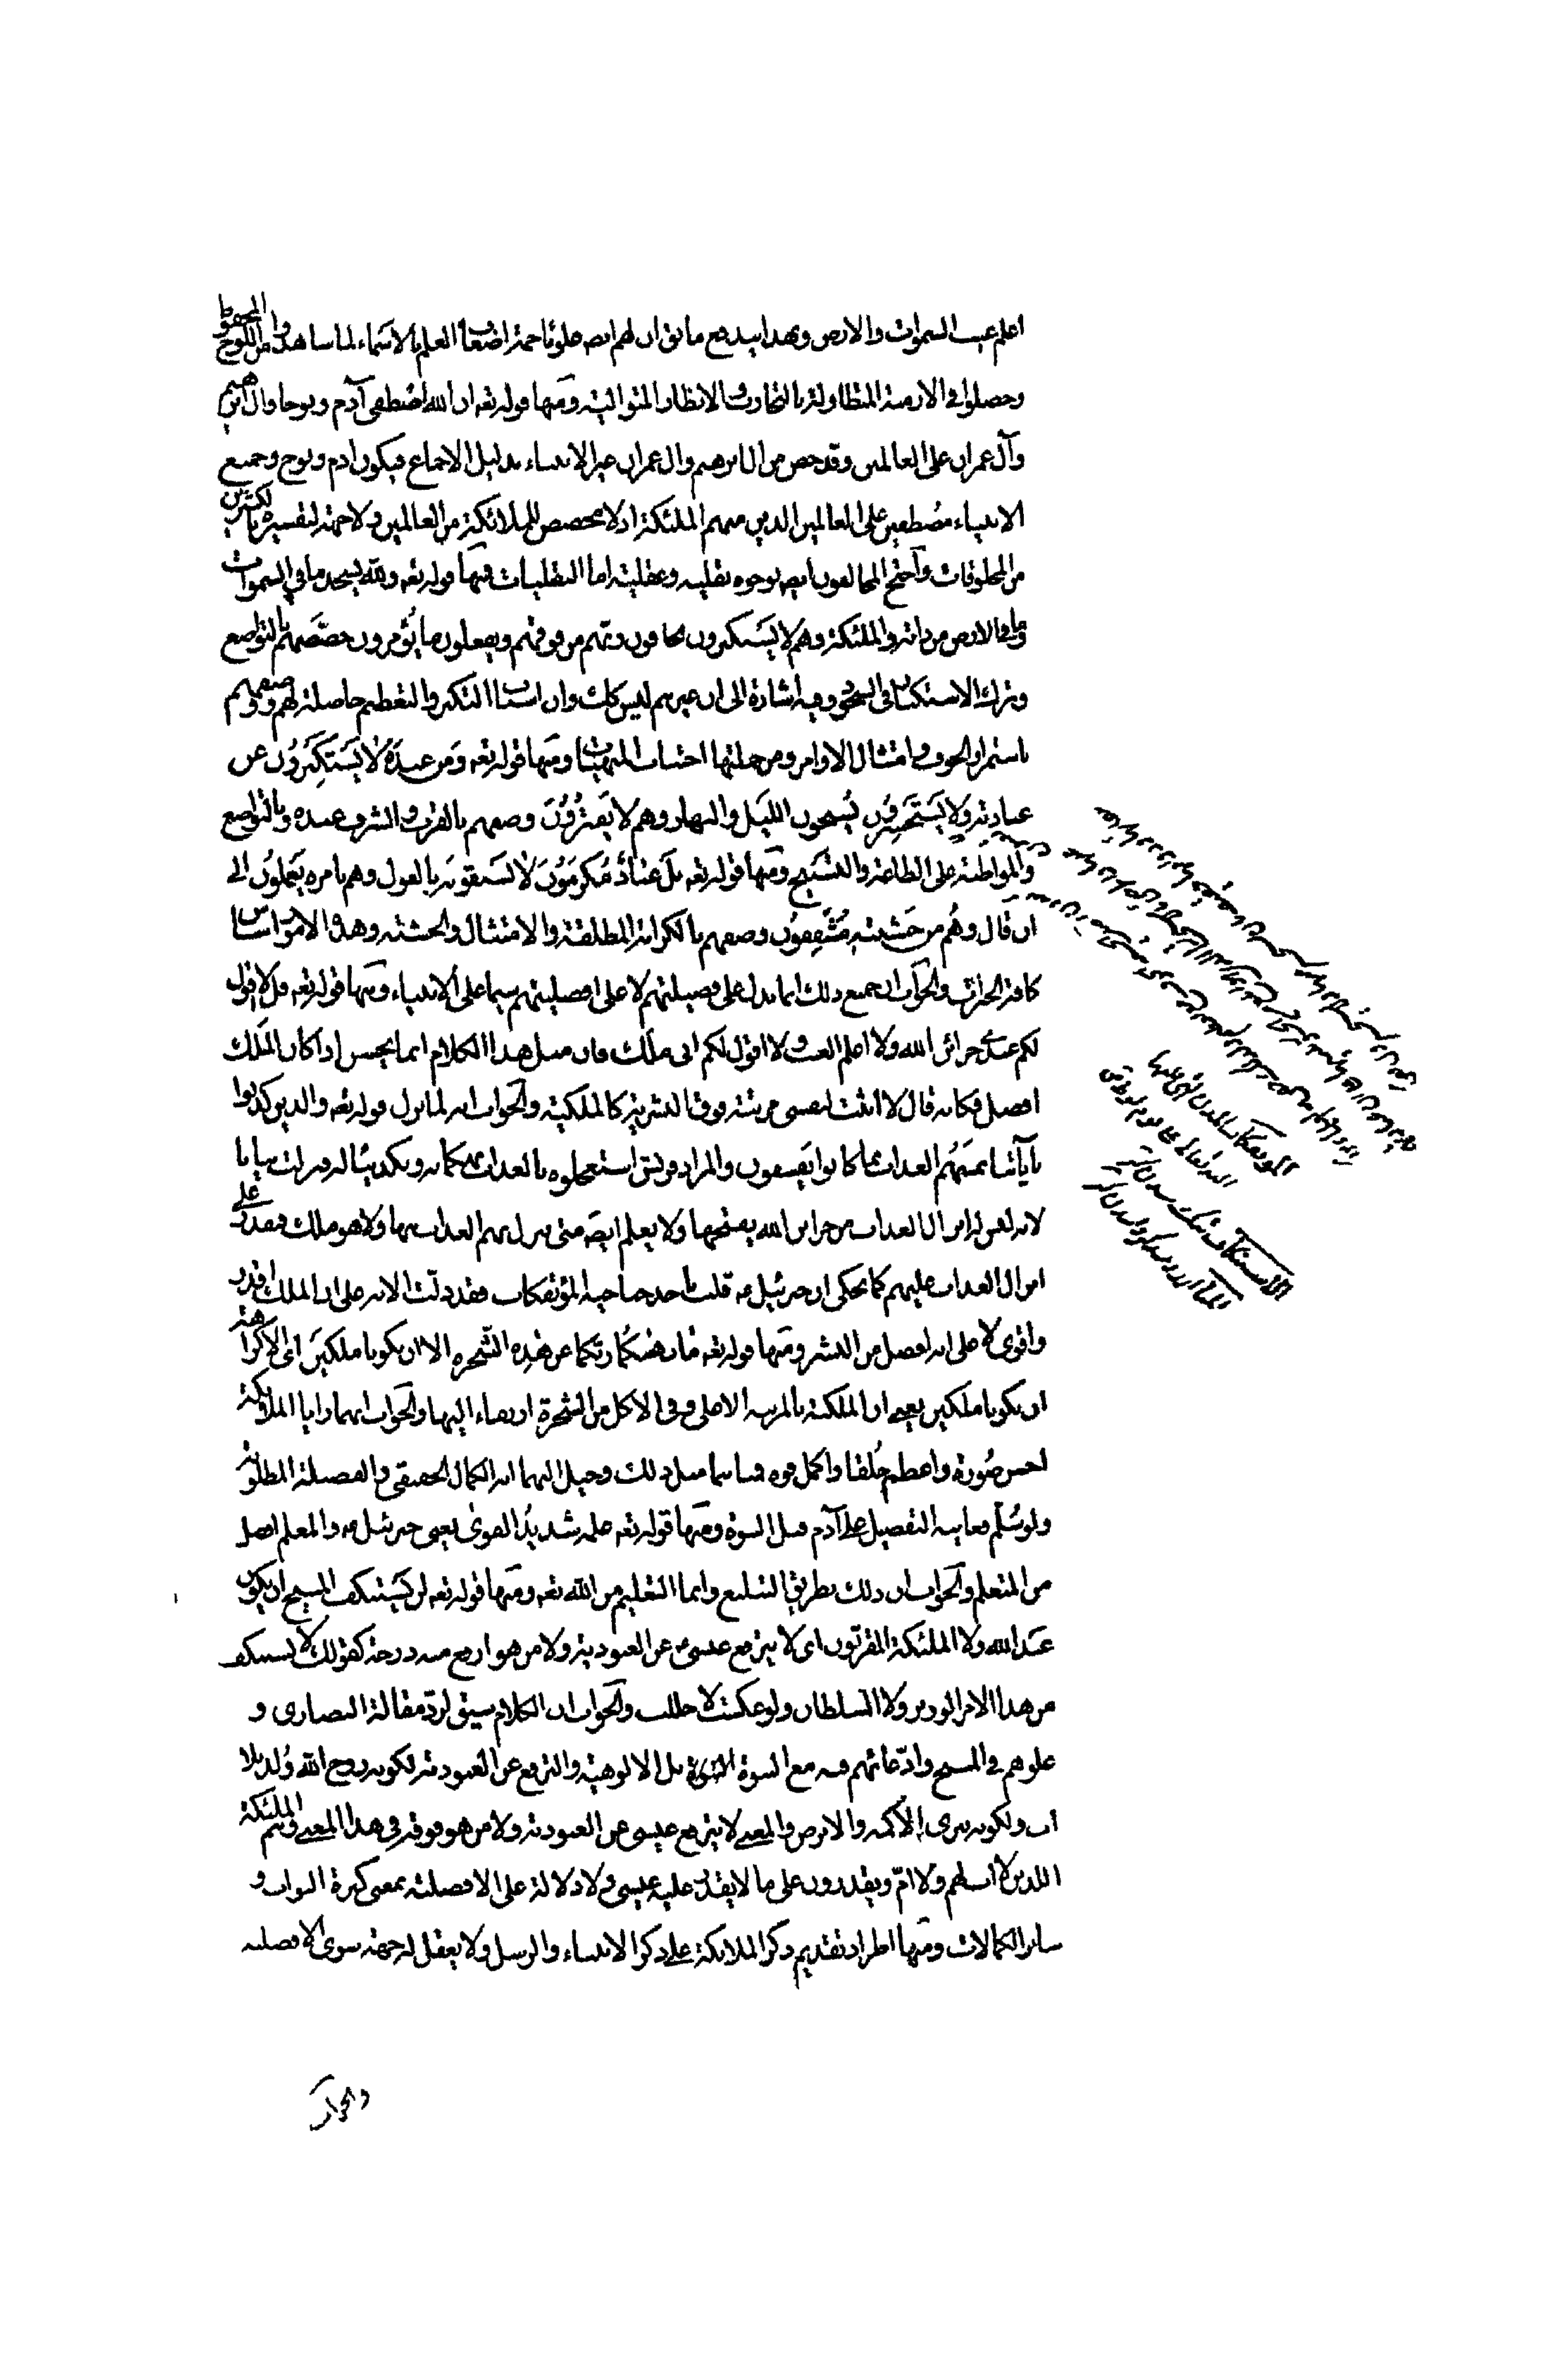 اعلم غيب السموات والارض وبهذا يندفع ما يق ان لهم ايض علوما جمة اضعاف العلم بالاسماء لما شاهدوا من اللوح المحفوظ
وحصلوا في الازمنة المتطاولة بالتجارب والانظار المتوالية ومنها قوله تعه ان الله اصطفى آدم ونوحا وآل ابرهيم
وآل عمران على العالمين وقد خص من آل ابرهيم وآل عمران غير الانبياء بدليل الاجماع فيكون ادم ونوح وجميع
الانبياء مصطفين على العالمين الذين منهم الملئكة اذ لا مخصص للملائكة من العالمين ولا جهة لتفسيره بالكثيرين
من المخلوقات واحتج المخالفون ايض بوجوه نقلية وعقلية اما النقليات فمنها قوله تعه ولله يسجد ما في السموات
وما في الارض من دابة والملئكة وهم لا يستكبرون يخافون ربهم من فوقهم ويفعلون ما يؤمرون خصصهم بالتواضع
وترك الاستكبار في السجود وفيه اشارة الى ان غيرهم ليس كك وان اسباب التكبر والتعظم حاصلة لهم ووصفهم
باستمرار الخوف وامتثال الاوامر ومن جملتها اجتناب المنهيات ومنها قوله تعه ومن عنده لا يستكبرون عن
عبادته ولا يستحسرون يسبحون الليل والنهار وهم لا يفترون وصفهم بالقرب والشرف عنده وبالتواضع
والمواظبة على الطاعة والتسبيح ومنها قوله تعه بل عباد مكرمون لا يسبقونه بالقول وهم بامره يعملون الى
ان قال وهم من خشيته مشفقون وصفهم بالكرامة المطلقة والامتثال والخشية وهذه الامور اساس
كافة الخيرات والجواب ان جميع ذلك انما يدل على فضيلتهم لا على افضليتهم سيما على الانبياء ومنها قوله تعه قل لا اقول
لكم عندي خزائن الله ولا اعلم الغيب ولا اقول لكم اني ملك فان مثل هذا الكلام انما يحسن اذا كان الملك
افضل فكانه قال لا اثبت لنفسي مرتبة فوق البشرية كالملكية والجواب انه لما نزل قوله تعه والذين كذبوا
بآياتنا يمسهم العذاب بما كانوا يفسقون والمراد قريش استعجلوه بالعذاب تهكما به وتكذيبا له فنزلت بيانا
لانه ليس له انزال العذاب من خزاين الله يفتحها ولا يعلم ايضه متى ينزل بهم العذاب منها ولا هو ملك فيقدر على
انزال العذاب عليهم كما يحكى ان جبرئيل ع قلب باحد جناحيه المؤتفكات فقد دلت الاية على ان الملك اقدر
واقوى لا على انه افضل من البشر ومنها قوله تعه ما نهيكما ربكما عن هذه الشجرة الا ان تكونا ملكين اي الا كراهة
ان تكونا ملكين يعني ان الملكية بالمرتبة الاعلى وفي الاكل من الشجرة ارتقاء اليها والجواب انهما رايا الملائكة
احسن صورة واعظم خلقا واكمل قوة فمناهما مثل ذلك وخيل اليهما انه الكمال الحقيقي والفضيلة المطلوبة
ولو سلم فغايته التفضيل على آدم قبل النبوة ومنها قوله تعه علمه شديد القوى يعني جبرئيل ع والمعلم افضل
من المتعلم والجواب ان ذلك بطريق التبليغ وانما التعليم من الله تعه ومنها قوله تعه لن يستنكف المسيح ان يكون
عبد الله ولا الملئكة المقربون اي لا يترفع عيسى ع عن العبودية ولا من هو ارفع منه درجة كقولك لا يستنكف
من هذا الامر الوزير ولا السلطان ولو عكست لاخللت والجواب ان الكلام سيق لرد مقالة النصارى و
غلوهم في المسيح وادعائهم فيه مع النبوة البنوة بل الالوهية والترفع عن العبودية لكونه روح الله ولد بلا
اب ولكونه يبرئ الاكمه والابرص والمعنى لا يترفع عيسى عن العبودية ولا من هو فوقه في هذا المعنى وهم الملئكة
الذين لا اب لهم ولا ام ويقدرون على ما لا يقدر عليه عيسى ولا دلالة على الافضلية بمعنى كثرة الثواب و
ساير الكمالات ومنها اطراد تقديم ذكر الملائكة على ذكر الانبياء والرسل ولا يعقل له جهة سوى الافضلية
والجواب